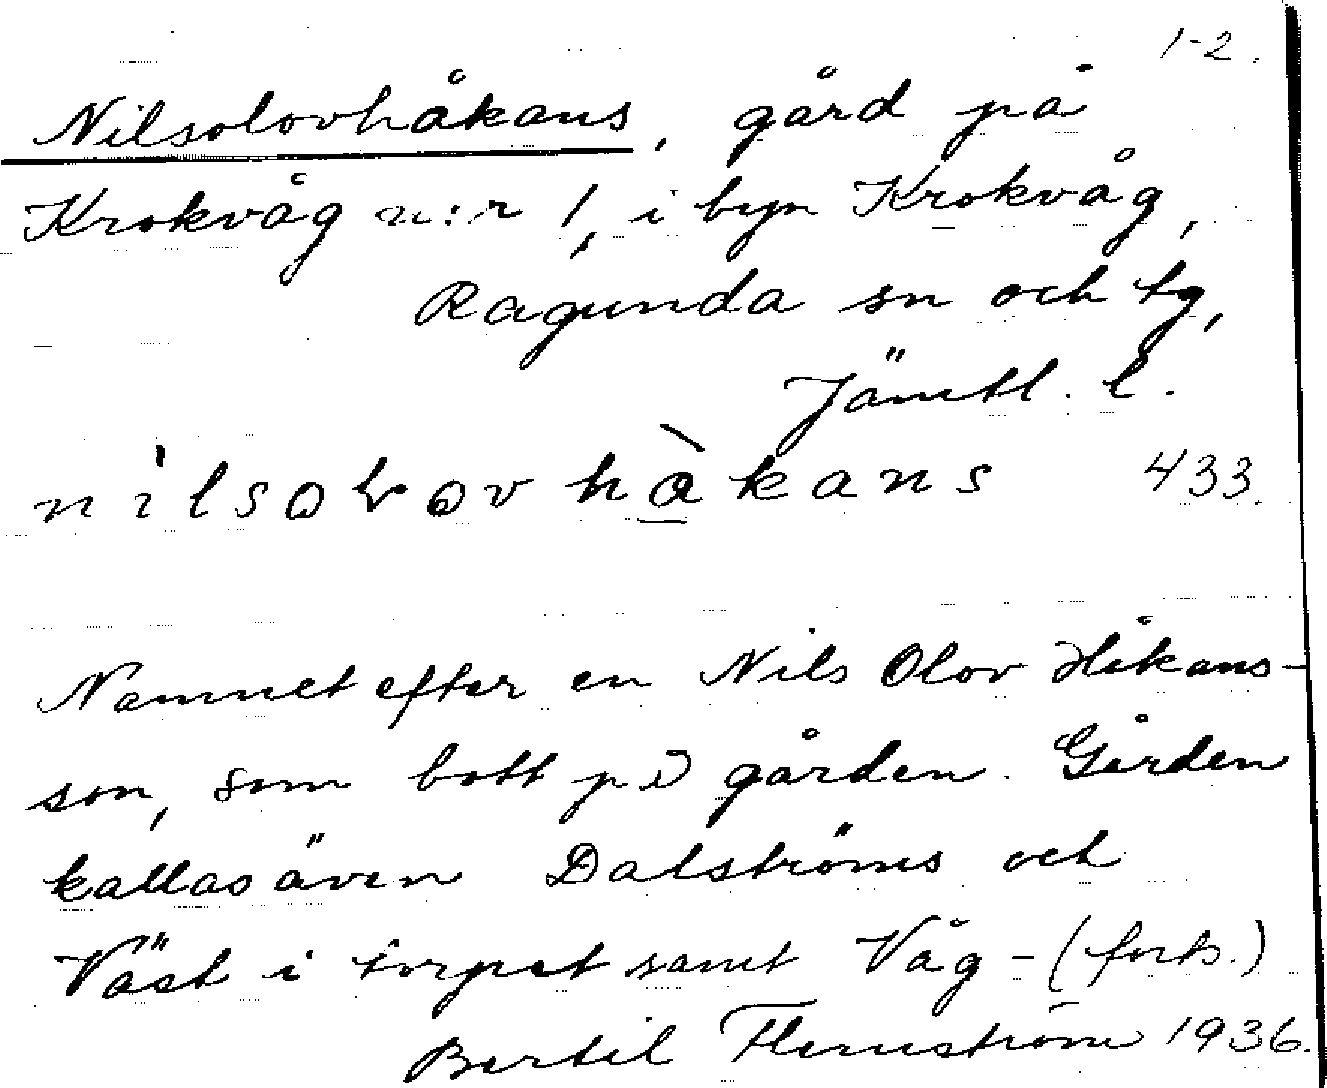 1-2.
Nilsolovhåkans, gård på
Krokvåg n:r 1, i byn Krokvåg,
Ragunda sn och tg,
Jämtl. l.
nilsolovhàkans 433.
Namnet efter en Nils Olov Håkans-
son, som bott på gården. Gården
kallas även Dalströms och
Väst i torpet samt Våg - (forts.)
Bertil Flemström 1936.